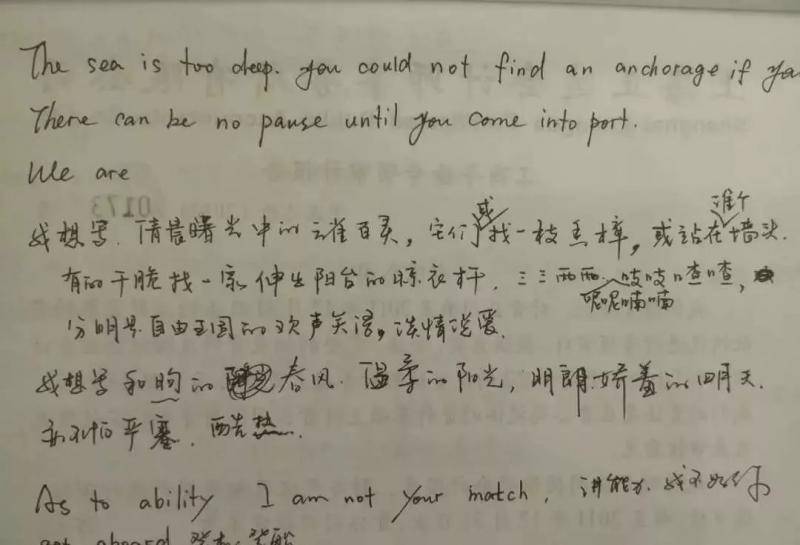 The sea is too deep. you could not find an anchorage if you
There can be no pause until you come into port.
We are
我想写. 清晨曙光中的云雀百灵, 它们或找一枝香樟, 或站在谁个墙头.
有的干脆找一家伸出阳台的晾衣杆, 三三两两. 吱吱喳喳,
呢呢喃喃
分明是自由王国的欢声笑语, 谈情说爱.
我想写和煦的春风. 温柔的阳光, 明朗娇羞的四月天.
严寒. 酷热.
As to ability I am not your match, 讲能力. 我不如你
get aboard
0173